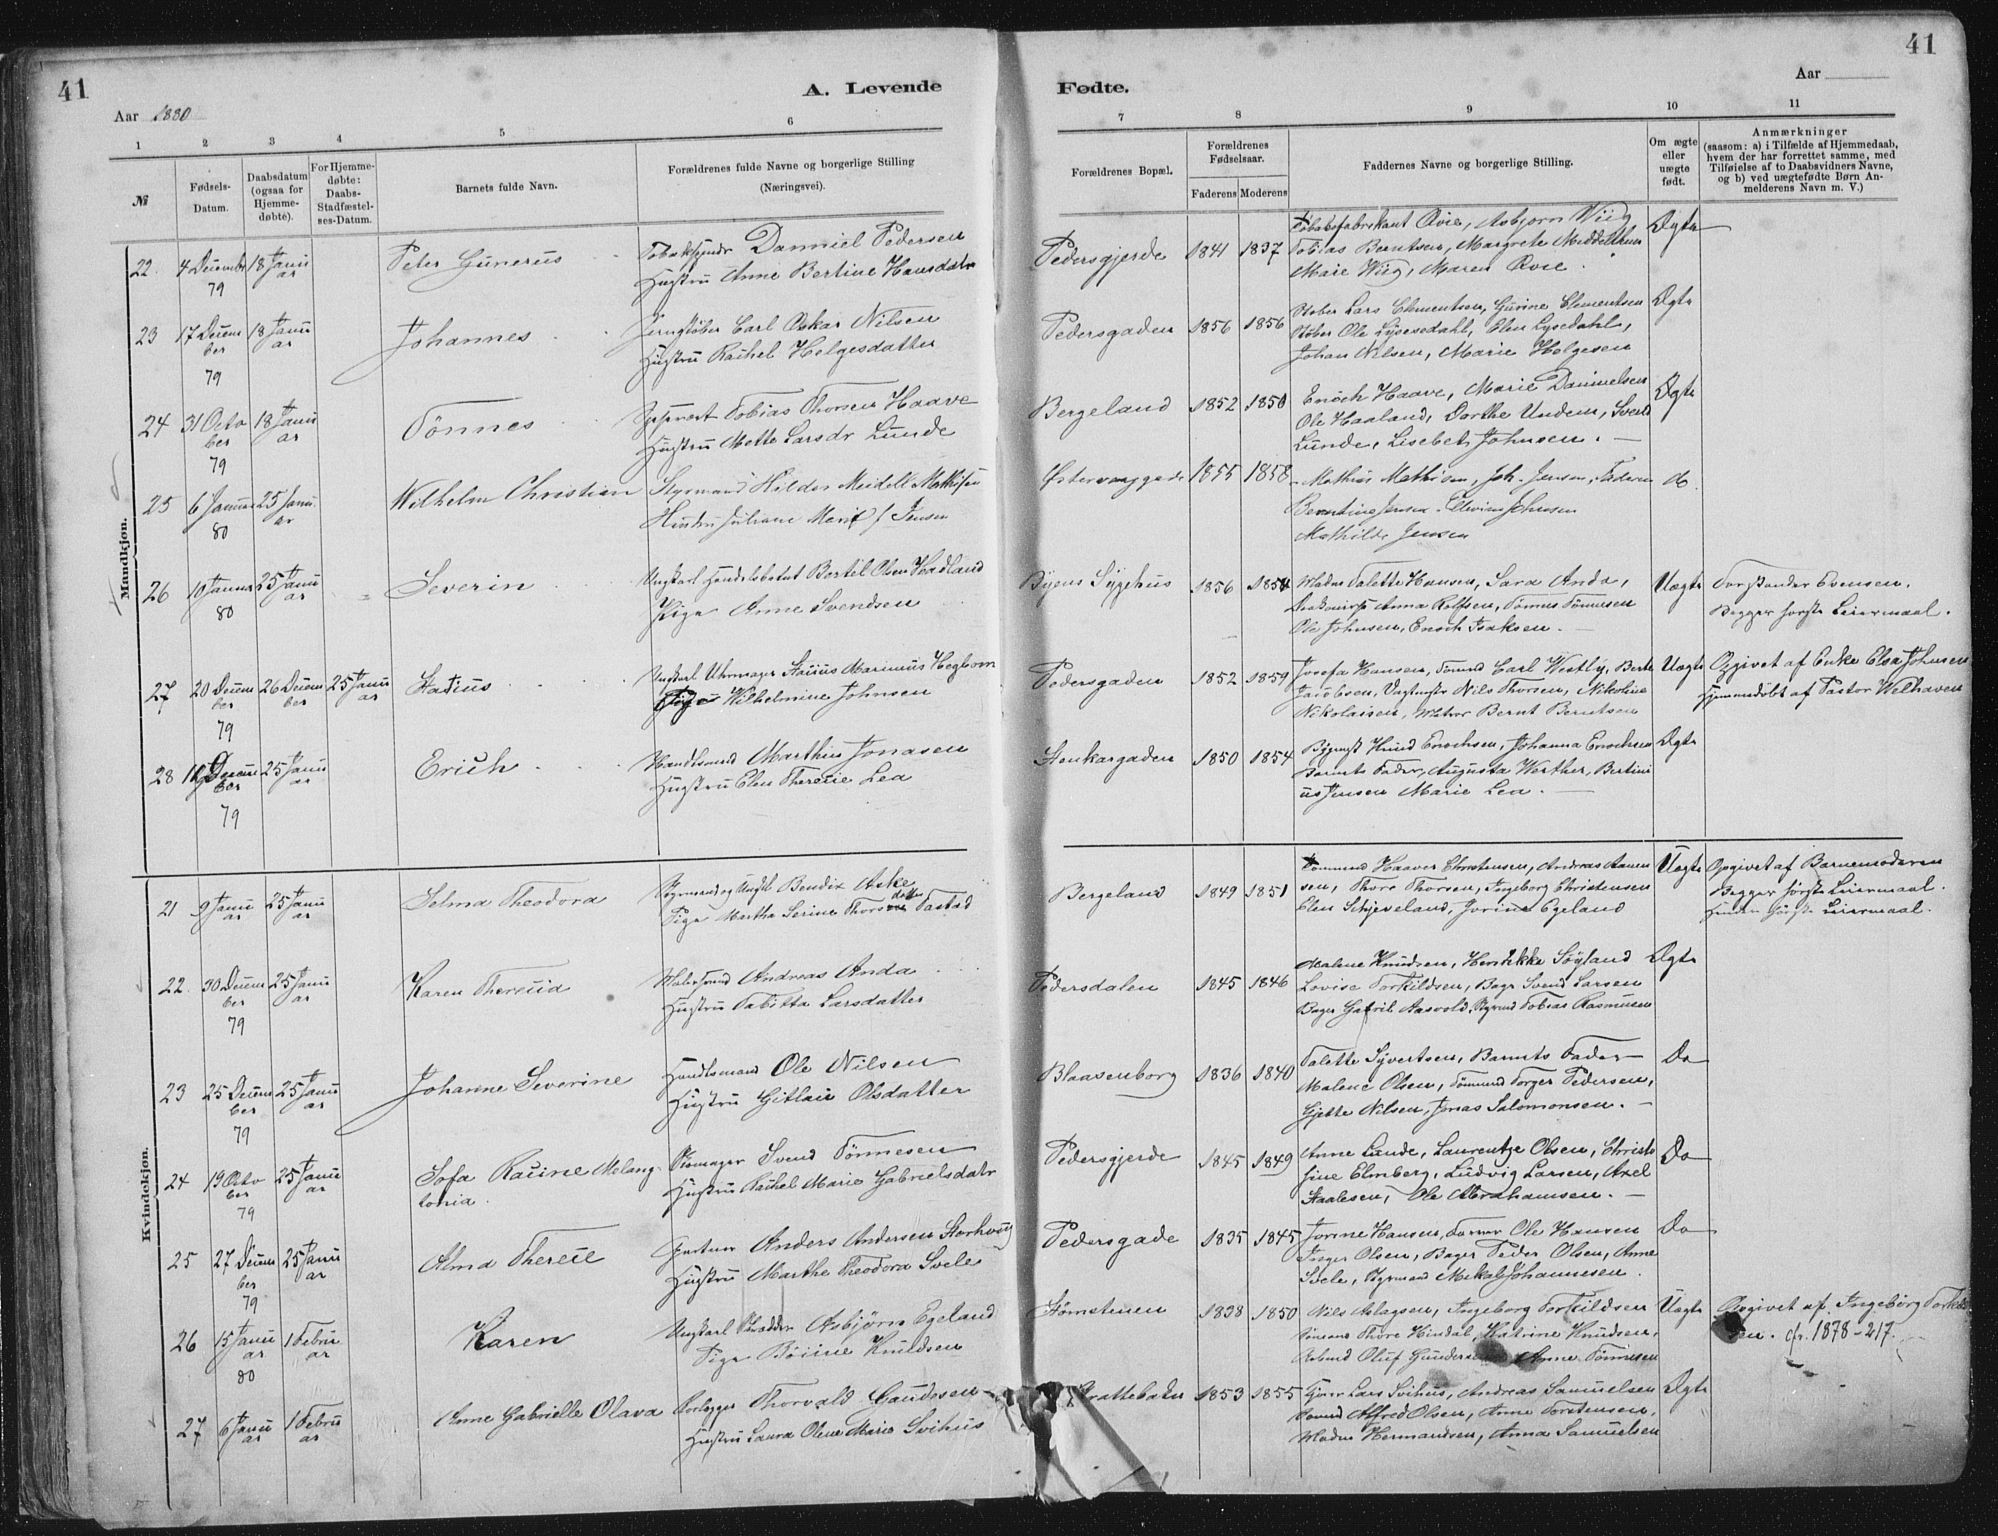 41
41
Aar 1880
A. Levende
Fødte.
Aar
1 2 3 4 5 6 7 8 9 10 11
№
Fødsels-
Datum.
Daabsdatum
(ogsaa for
Hjemme-
døbte).
For Hjemme-
døbte:
Daabs-
Stadfæstel-
ses-Datum.
Barnets fulde Navn.
Forældrenes fulde Navne og borgerlige Stilling
(Næringsvei).
Forældrenes Bopæl.
Forældrenes
Fødselsaar.
Faderens Moderens
Faddernes Navne og borgerlige Stilling.
Om ægte
eller
uægte
født.
Anmærkninger
(saasom: a) i Tilfælde af Hjemmedaab,
hvem der har forrettet samme, med
Tilføielse af to Daabsvidners Navne,
og b) ved uægtefødte Børn An-
melderens Navn m. V.)
Mandkjøn.
22. 4 December 79 18 Januar
Peter Gunerus
Danniel Pedersen
Hustru Anne Bertine Hansdatr
Pedersgjerde 1841 1837
Qvie, Asbjørn Wiig
Tobias Berntsen, Margrete Middelthun
Marie Wiig, Maren Qvie.
Ægte
23 17 December 79 18 Januar
Johannes
Carl Oskar Nilsen
Hustru Rachel Helgesdatter
Pedersgaden 1856 1856
Støber Lars Clementsen, Gurine Clementsen
Støber Ole Lysesedahl, Elen Lysedahl,
Johan Nilsen, Marie Helgesen
Ægte
24 31 October 79 18 Januar
Tönnes
Tobias Thorsen Haave
Hustru Mette Larsdr Lunde
Bergeland 1852 1850
Enoch Haave, Marie Dannielsen
Ole Haaland, Dorthe Undem, Svend
Lunde, Lisebet Johnsen.
Ægte
25 6 Januar 80 25 Januar
Wilhelm Christian
Styrmand Hildor Meidell Mathisen
Hustru Juliane Marie f. Jensen
1855 1858
Mathias Mathisen, Joh. Jensen, Faderen
Berntine Jensen. Elvine Johnsen
Mathilde Jensen
do.
26 10 Januar 80 25 Januar
Severin
Ungkarl Handelsbetnt Bertil Olsen Hadland
Pige Anne Svendsen
Byens Sygehus 1856
Madm Talette Hansen, Sara Anda,
Anna Rolfsen, Tönnes Tönnesen
Ole Johnsen, Enoch Isaksen.
Uægte
Forstander Evensen.
Begges første Leiermaal.
27 20 December 79 26 December 25 Januar
Statius
Ungkarl Uhrmager Statius Marinius Hegbom
Pige Wilhelmine Johnsen
Pedersgaden 1852 1859
Josefa Hansen, Carl Westly, Berte
Jacobsen, Nils Thorsen, Nikoline
Nikolaisen, Matros Bernt Berntsen
Uægte
Opgivet af Enke Elsa Johnsen
Hjemmedøbt af Pastor Welhaven
28 December 79 25 Januar
Erich
Handlsmand Marthin Jonasen
Hustru Elen Therecie Lea
Stenkargaden 1850 1854
Knud Enochsen, Johanna Enochsen
Barnets Fader, Augusta Werther, Bertini
us Jensen Marie Lea.
Ægte
Kvindekjøn.
21 9 Januar 25 Januar
Selma Theodora
Styrmand og Ungkl Bendix Aske
Pige Martha Serine Thorsdatter Tastad
Bergeland 1849 1851
Tømmermd Haaver Christensen, Andreas Aanen
sen, Thore Thorsen, Ingeborg Christensen
Elen Schjeveland, Jorine Egeland
Uægte
Opgivet af Barnemoderen
Begges første Leiermaal.
Hendes første Leiermaal.
22. 30 December 79 25 Januar
Karen Therecia
Andreas Anda
Hustru Tabitta Larsdatter
Pedersdalen 1845 1846
Malene Knudsen, Henrikke Søyland
Lovise Torkildsen, Bagr Svend Larsen
Bager Gabriel Aasvold, Styrmd Tobias Rasmusen
Ægte
23 25 December 79 25 Januar
Johanne Severine
Handlsmand Ole Nilsen
Hustru Gitlau Olsdatter
Blaasenborg 1836 1840
Talette Syvertsen, Barnets Fader
Malene Olsen, Tömmd Torger Pedersen,
Gjette Nilsen, Jonas Salomonsen.
Do
24 19 October 79 25 Januar
Sofa Racine Melang
tonia.
Skomager Svend Tönnesen
Hustru Rachel Marie Gabrielsdatr
Pedersgjerde 1845 1849
Anne Lunde, Laurentze Olsen, Christo
fine Elmberg, Ludvig Larsen, Axel
Staalesen, Ole Abrahamsen.
Do
25 27 December 79 25 Januar
Alma Therecie
Gartner Anders Andersen Storhoug
Hustru Marthe Theodora Svele
Pedersgade 1835 1845
Jorine Hansen, Ole Hansen
Inger Olsen, Bager Peder Olsen, Anne
Svele, Styrmand Mekal Johannesen.
Do
26 15 Januar 80 1 Februar
Karen
Ungkarl Asbjørn Egeland
Pige Knudsen
1838 1850
Nils Aslagsen, Ingeborg Torkildsen
Thore Hindal, Katrine Knudsen,
Oluf Gundersen Anne Tönnesen
Uægte
Opgivet af. Ingeborg Torkild
sen. cfr. 1878-217.
27 6 Januar 1 Februar
Anne Gabrielle Olava
Thorvald Gaudesen
Hustru Laura Olene Marie Svihus
Brattebakken 1853 1855
Lars Svihus, Andreas Samuelsen
Alfred Olsen, Anne Torstensen,
Madm Hermandsen, Anna Samuelsen
Ægte